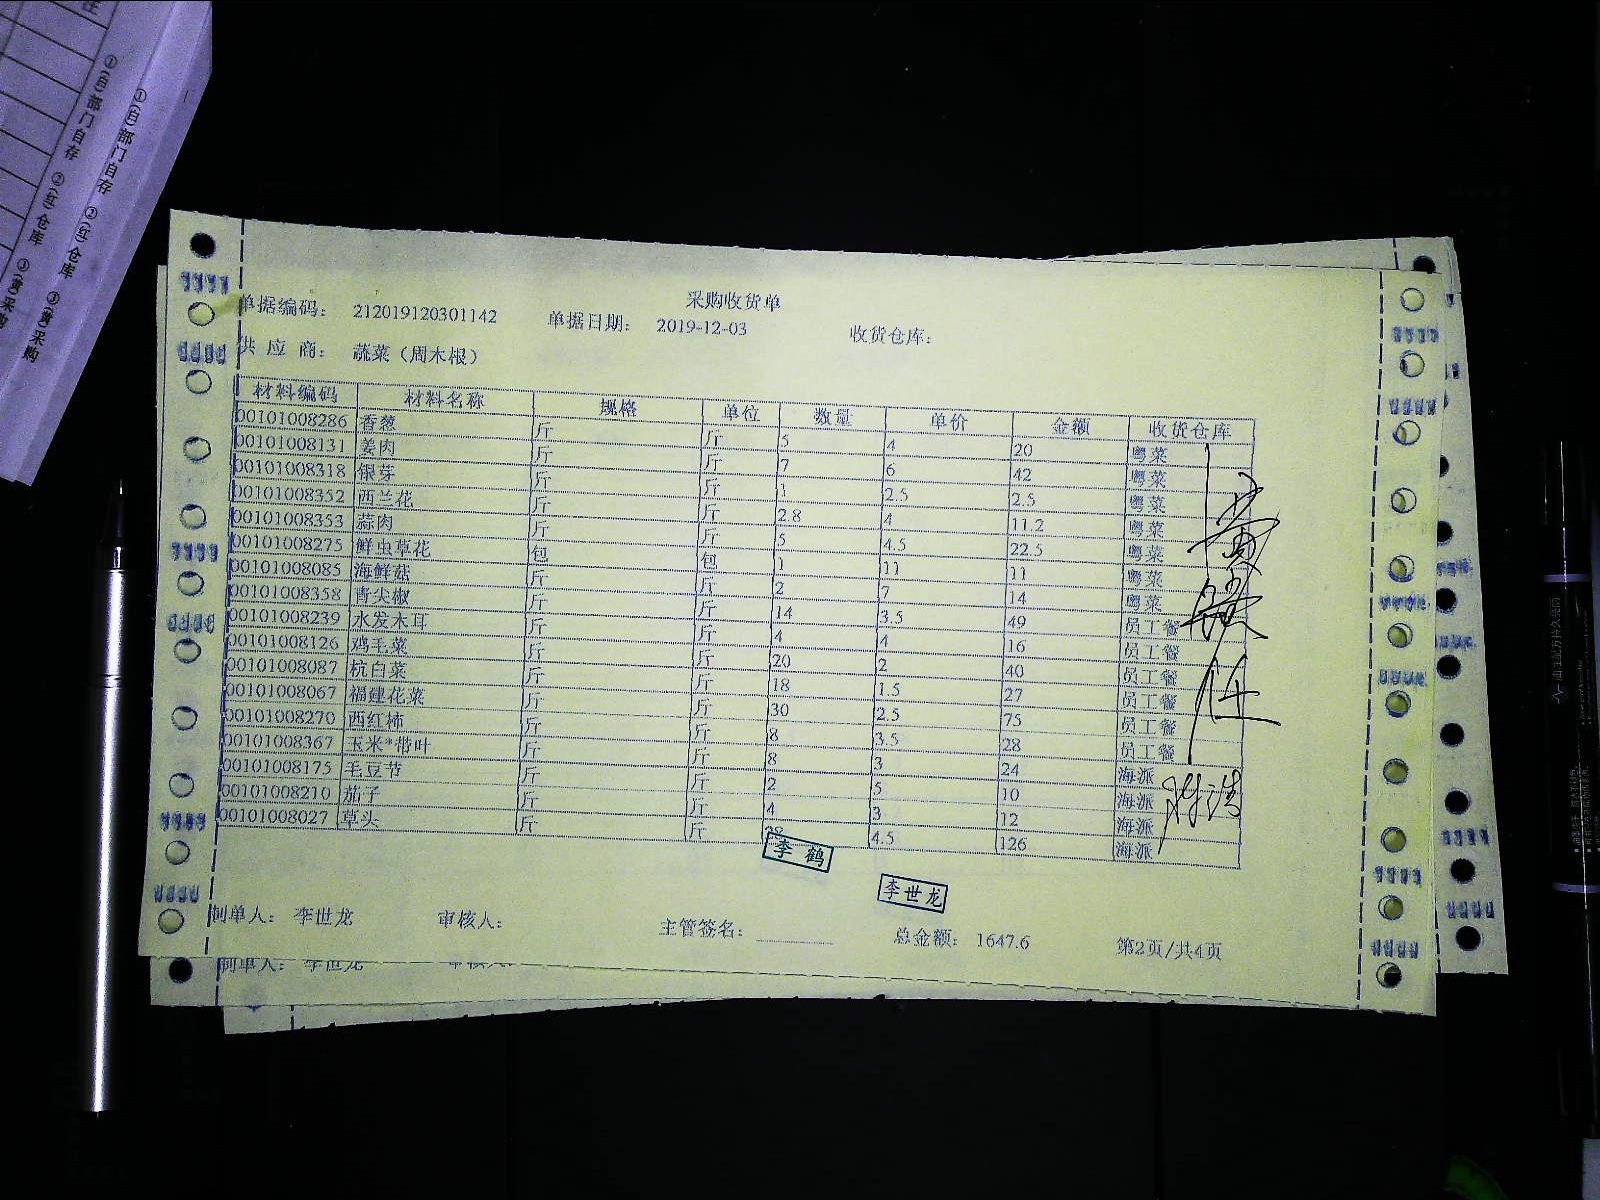 采购收货单
单据编码: 212019120301142 单据日期: 2019-12-03 收货仓库:
供 应 商: 蔬菜（周木根）
材料编码 材料名称 规格 单位 数量 单价 金额 收货仓库
00101008286 香葱 斤 斤 5 4 20 粤菜
00101008131 姜肉 斤 斤 7 6 42 粤菜
00101008318 银芽 斤 斤 1 2.5 2.5 粤菜
00101008352 西兰花 斤 斤 2.8 4 11.2 粤菜
00101008353 蒜肉 斤 斤 5 4.5 22.5 粤菜
00101008275 鲜虫草花 包 包 1 11 11 粤菜
00101008085 海鲜菇 斤 斤 2 7 14 粤菜
00101008358 青尖椒 斤 斤 14 3.5 49 员工餐
00101008239 水发木耳 斤 斤 4 4 16 员工餐
00101008126 鸡毛菜 斤 斤 20 2 40 员工餐
00101008087 杭白菜 斤 斤 18 1.5 27 员工餐
00101008067 福建花菜 斤 斤 30 2.5 75 员工餐
00101008270 西红柿 斤 斤 8 3.5 28 员工餐
00101008367 玉米*带叶 斤 斤 8 3 24 海派
00101008175 毛豆节 斤 斤 2 5 10 海派
00101008210 茄子 斤 斤 4 3 12 海派
00101008027 草头 斤 斤 28 4.5 126 海派
李 鹤
李世龙
制单人: 李世龙 审核人: 主管签名: 总金额: 1647.6 第2页/共4页
制单人: 李世龙 审核人:
①(白)部门自存 ②(红)仓库 ③(黄)采购
①(白)部门自存 ②(红)仓库 ③(黄)采购